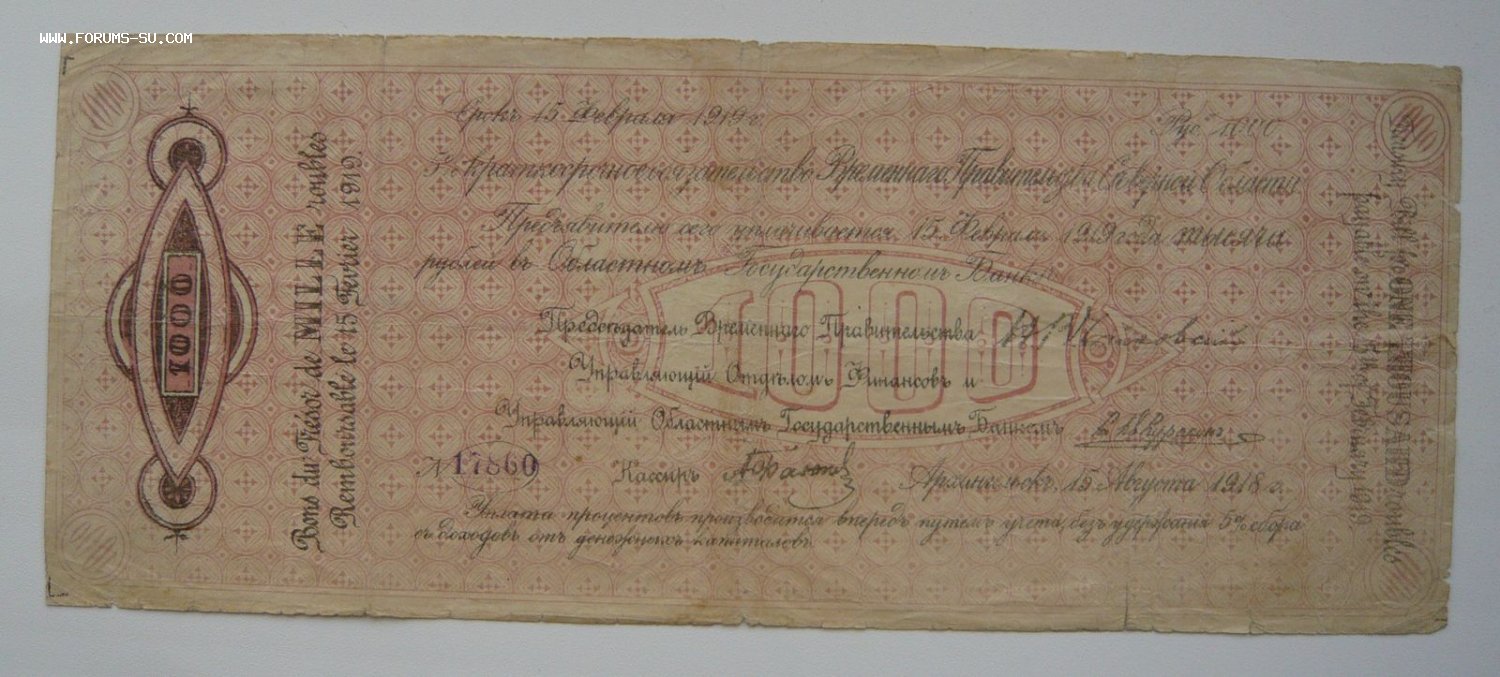 WWW.FORUMS-SU.COM
1000
Bons du Trésor de MILLE roubles
Remboursable le 15 Fevrier 1919
Срокъ 15 Февраля 1919 г.
Руб. 1000
5% краткосрочное обязательство Временнаго Правительства Северной Области
Предъявителю сего уплачивается 15 Февраля 1919 года тысяча
рублей въ Областномъ Государственномъ Банке
1000
Председатель Временнаго Правительства
Управляющiй Отделомъ Финансовъ и
Управляющiй Областнымъ Государственнымъ Банкомъ
№ 17860
Кассиръ
Архангельскъ, 15 Августа 1918 г.
Уплата процентовъ производится впередъ путемъ учета, безъ удержания 5% сбора
съ доходовъ отъ денежныхъ капиталовъ
ONE THOUSAND roubles
payable on the February 1919